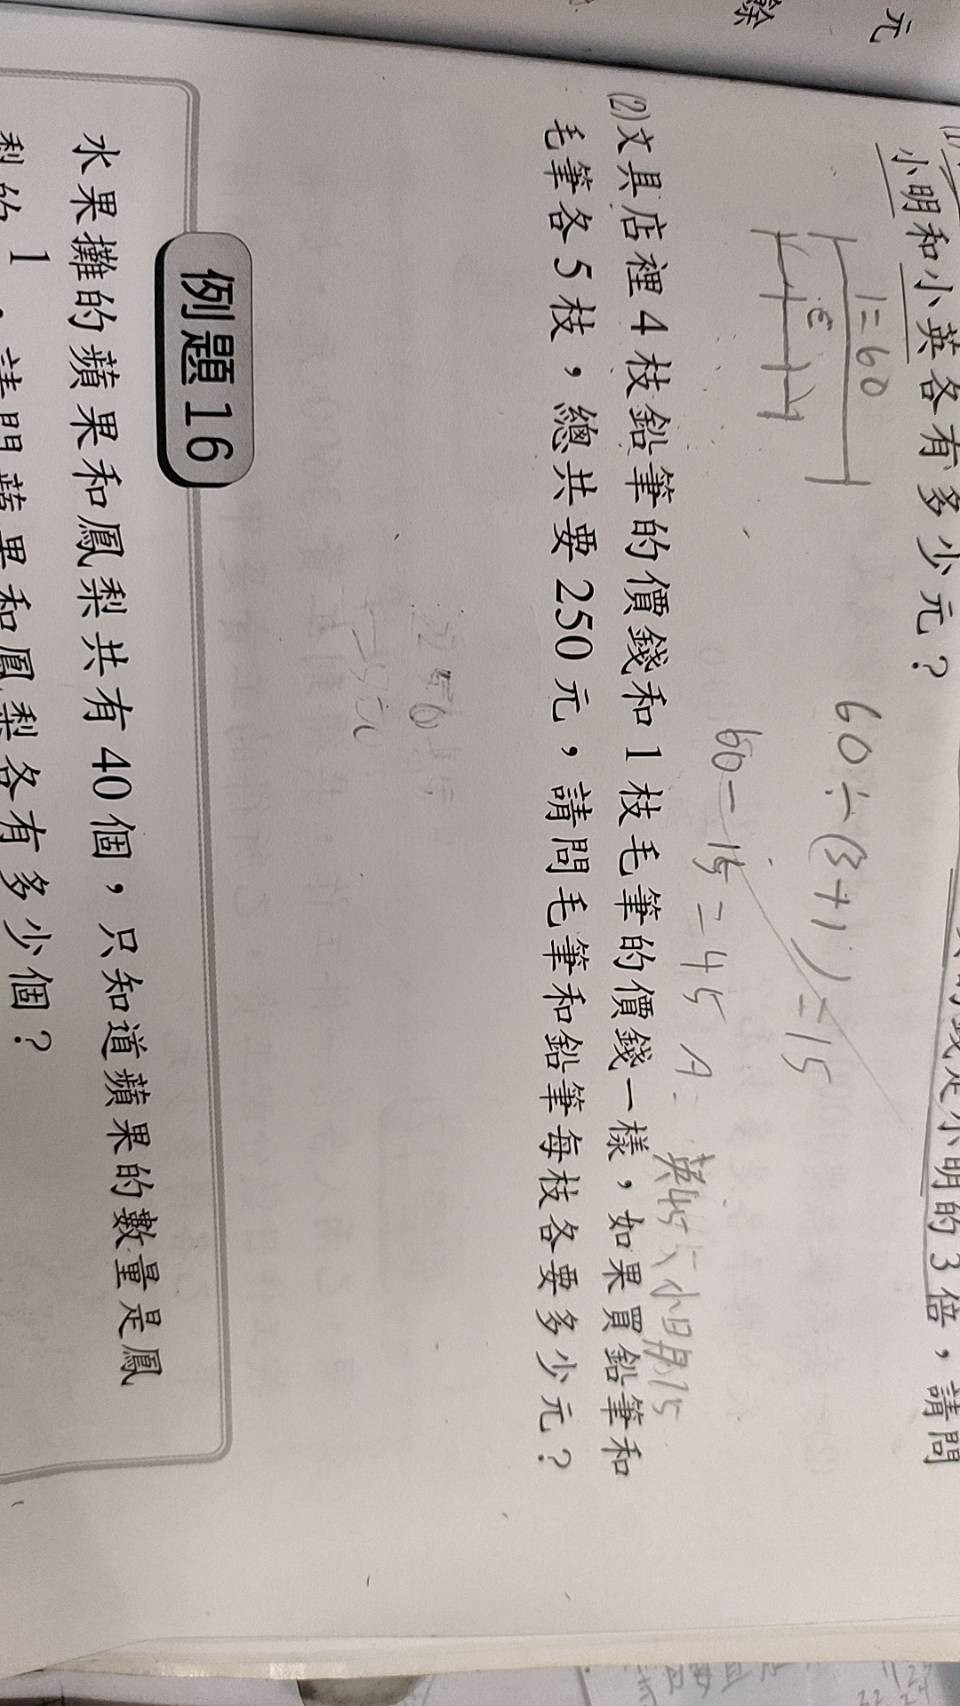 元
餘
的錢是小明的3倍，請問
小明和小英各有多少元？
1=60
60÷(3+1)=15
60-15=45 A: 英45 小明15
(2)文具店裡4枝鉛筆的價錢和1枝毛筆的價錢一樣，如果買鉛筆和
毛筆各5枝，總共要250元，請問毛筆和鉛筆每枝各要多少元？
例題16
水果攤的蘋果和鳳梨共有40個，只知道蘋果的數量是鳳
梨的 1 ，請問蘋果和鳳梨各有多少個？